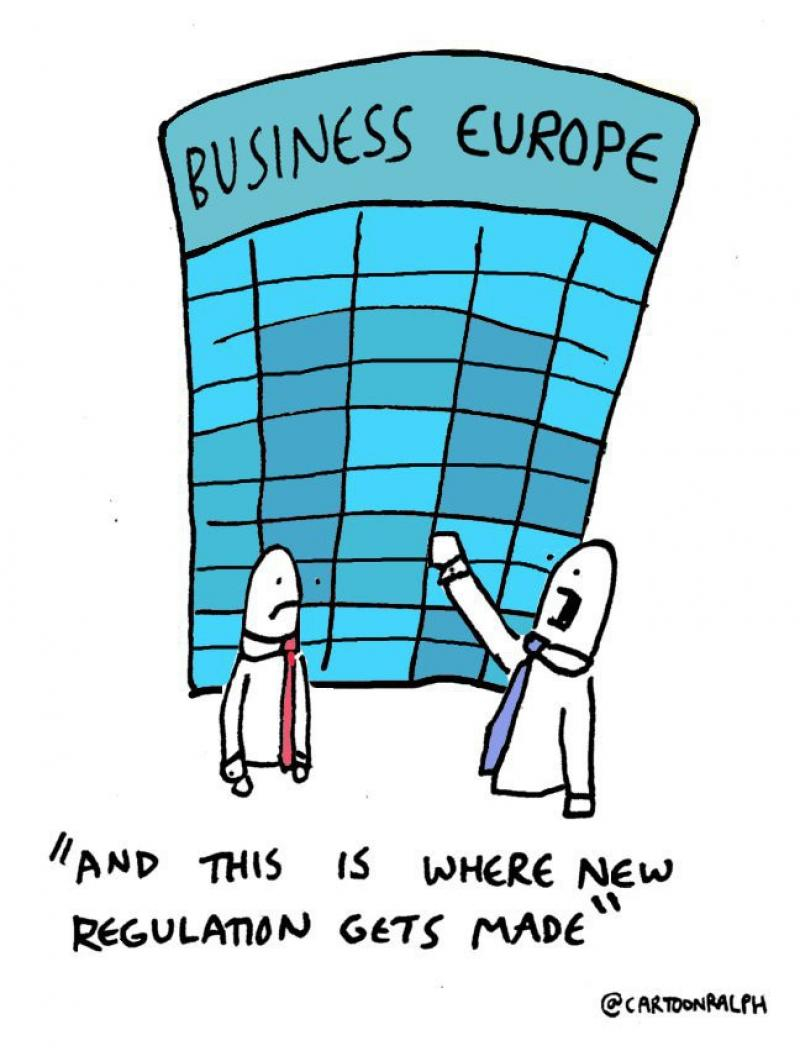 BUSINESS EUROPE
"AND THIS IS WHERE NEW
REGULATION GETS MADE"
@CARTOONRALPH